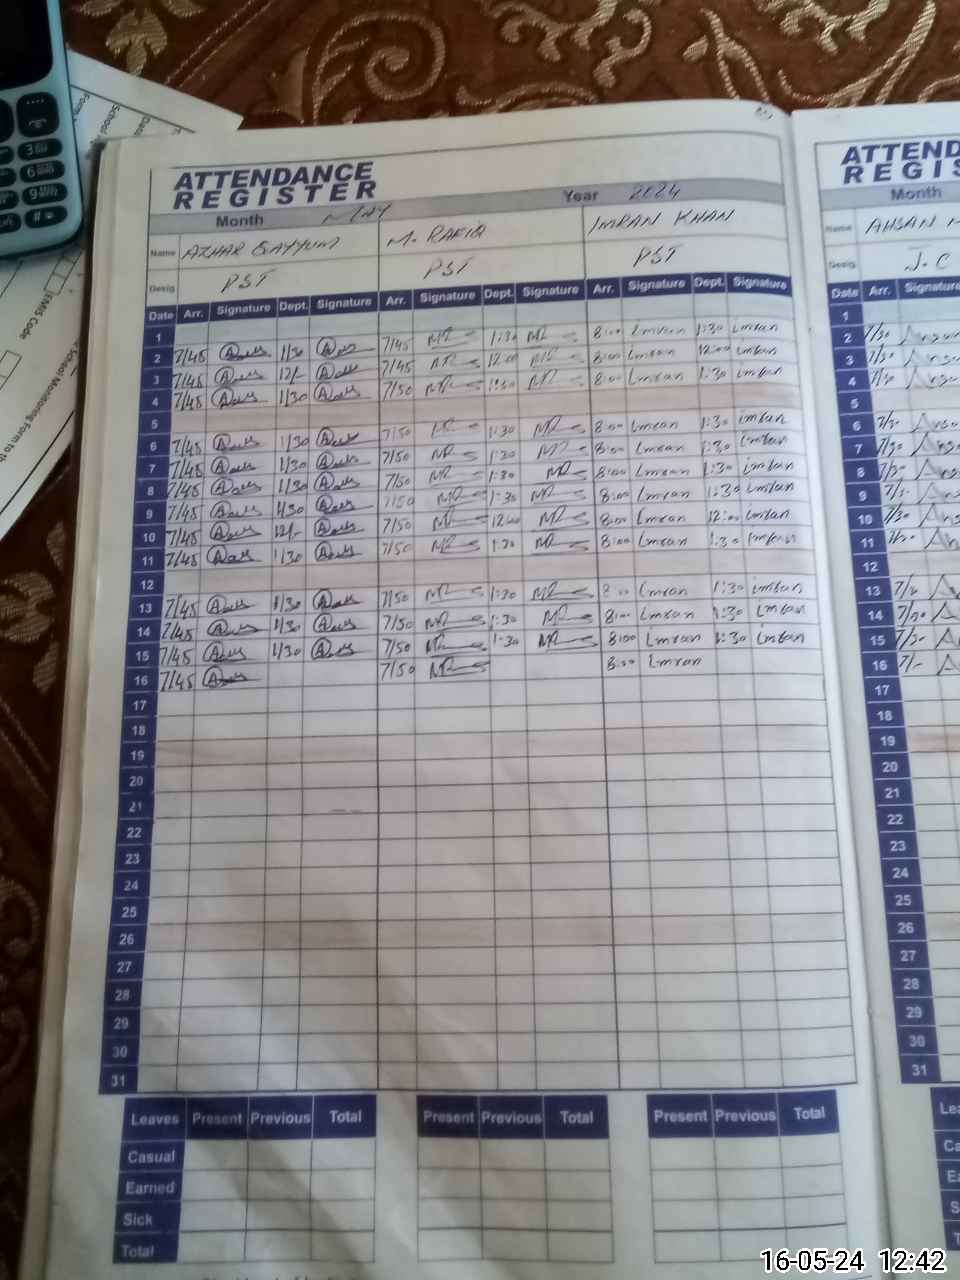 ATTENDANCE
REGISTER
Month MAY Year 2024
Name AZHAR QAYYUM M. RAFIQ IMRAN KHAN
Desig. PST PST PST
Date Arr. Signature Dept. Signature Arr. Signature Dept. Signature Arr. Signature Dept. Signature
1
2 7/45 1/30 7/45 MR 1:30 MR 8:00 Imran 1:30 Imran
3 7/45 12/- 7/45 MR 12:00 MR 8:00 Imran 12:00 Imran
4 7/45 1/30 7/50 MR 1:30 MR 8:00 Imran 1:30 Imran
5
6 7/45 1/30 7/50 MR 1:30 MR 8:00 Imran 1:30 Imran
7 7/45 1/30 7/50 MR 1:30 MR 8:00 Imran 1:30 Imran
8 7/45 1/30 7/50 MR 1:30 MR 8:00 Imran 1:30 Imran
9 7/45 1/30 7/50 MR 1:30 MR 8:00 Imran 1:30 Imran
10 7/45 12/- 7/50 MR 12:00 MR 8:00 Imran 12:00 Imran
11 7/45 1/30 7/50 MR 1:30 MR 8:00 Imran 1:30 Imran
12
13 7/45 1/30 7/50 MR 1:30 MR 8:00 Imran 1:30 Imran
14 7/45 1/30 7/50 MR 1:30 MR 8:00 Imran 1:30 Imran
15 7/45 1/30 7/50 MR 1:30 MR 8:00 Imran 1:30 Imran
16 7/45 7/50 MR 8:00 Imran
17
18
19
20
21
22
23
24
25
26
27
28
29
30
31
Leaves Present Previous Total Present Previous Total Present Previous Total
Casual
Earned
Sick
Total
ATTEND
REGIS
Month
Name AHSAN
Desig. J.C
Date Arr. Signature
1
2 7/30
3 7/30
4 7/30
5
6 7/30
7 7/30
8 7/30
9 7/30
10 7/30
11 7/30
12
13 7/30
14 7/30
15 7/30
16 7/-
17
18
19
20
21
22
23
24
25
26
27
28
29
30
31
EMIS Code
School Monitoring Form to th
3
6
9
#
16-05-24 12:42